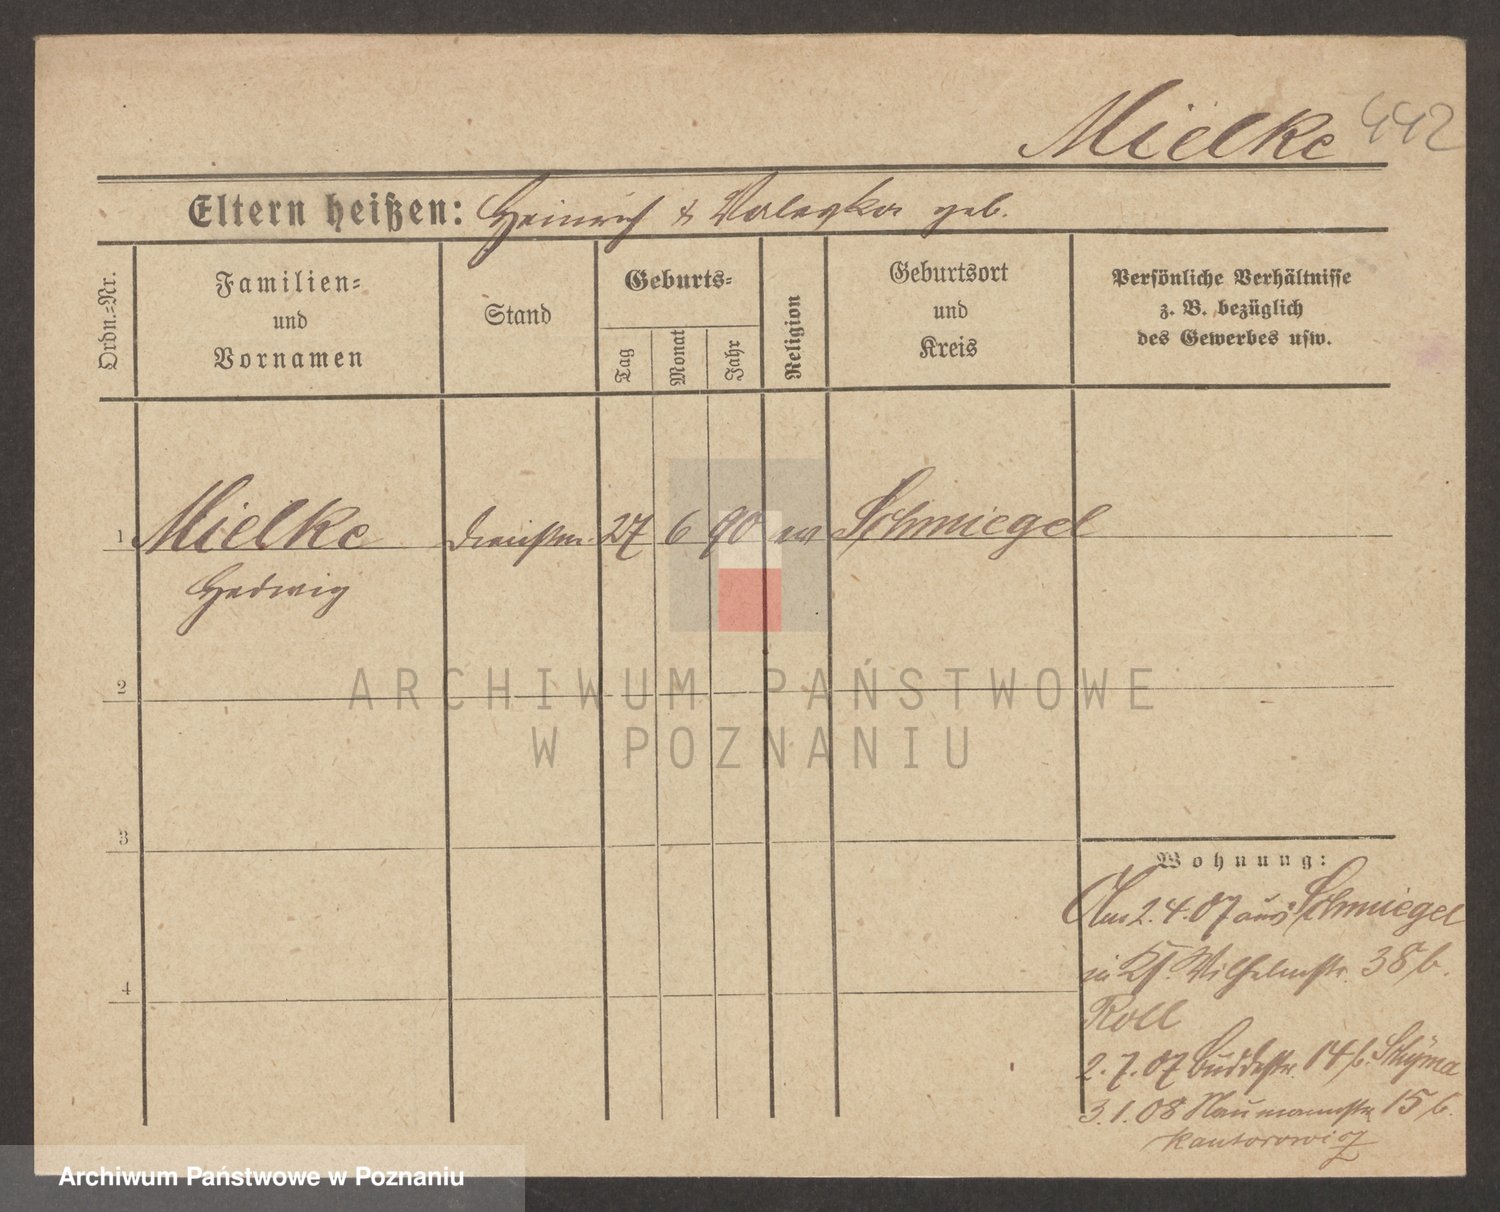 Mielke 442
Eltern heißen: Heinrich & Valeska geb.
Ordn.=Nr.
Familien=
und
Vornamen
Stand
Geburts=
Tag
Monat
Jahr
Religion
Geburtsort
und
Kreis
Persönliche Verhältnisse
z. B. bezüglich
des Gewerbes usw.
1 Mielke Dienstm. 27 6 90 ev Schmiegel
Hedwig
2
3
4
ARCHIWUM PAŃSTWOWE
W POZNANIU
Wohnung:
Am 2.4.07 aus Schmiegel
in Wilhelmstr. 38 b.
Roll
2.7.07 Buddestr. 14 b.
3.1.08 Naumannstr 15 b.
Kantorowicz
Archiwum Państwowe w Poznaniu